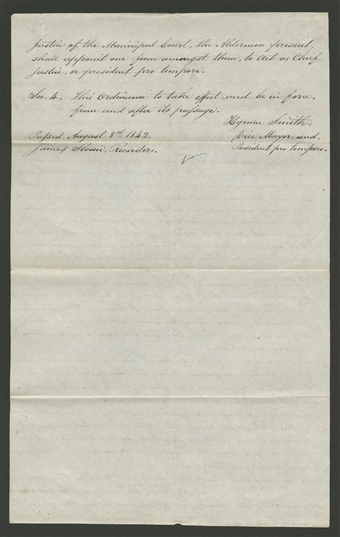 Justice of the Municipal Court, the Aldermen present,
shall appoint one from amongst them, to Act as Chief
Justice, or president pro tempore.
Sec. 4. This Ordinance to take effect, and be in force,
from and after its passage.
Hyrum Smith.
Passed August 8th. 1842.
Vice Mayor, and
James Sloan, Recorder.
President pro. tempore.